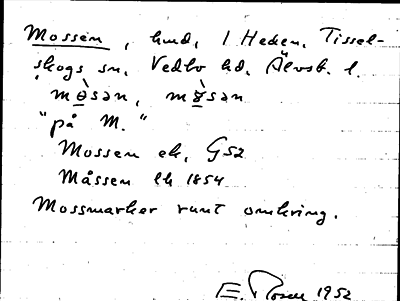 Mossen, hmd, 1 Heden, Tissel-
skogs sn, Vedbo hd, Älvsb. l.
mɵ̀sən, mɞ̀sən
"på M."
Mossen ek, GS2
Måssen lk 1854
Mossmarker runt omkring.
E. Rosell 1952